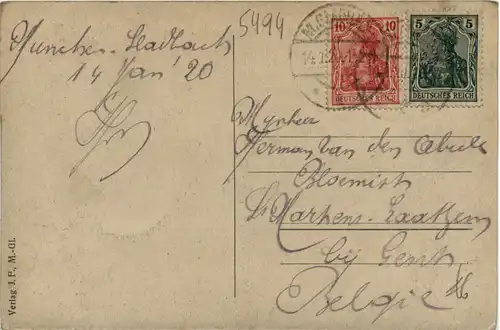 München-Gladbach
14 Jan' 20
5494
M. GLADB
14.1.20
10 10
DEUTSCHES REICH
5 5
DEUTSCHES REICH
Mynheer
Herman Van den Abeele
Bloemist
St Martens-Laathem
bij Gent
Belgie
Verlag J. F., M.-Gl.